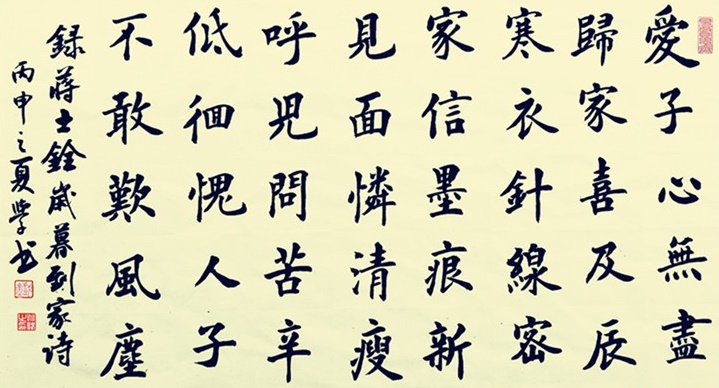 愛子心無盡
歸家喜及辰
寒衣針線密
家信墨痕新
見面憐清瘦
呼兒問苦辛
低徊愧人子
不敢歎風塵
録蔣士銓歲暮到家诗
丙申之夏學书